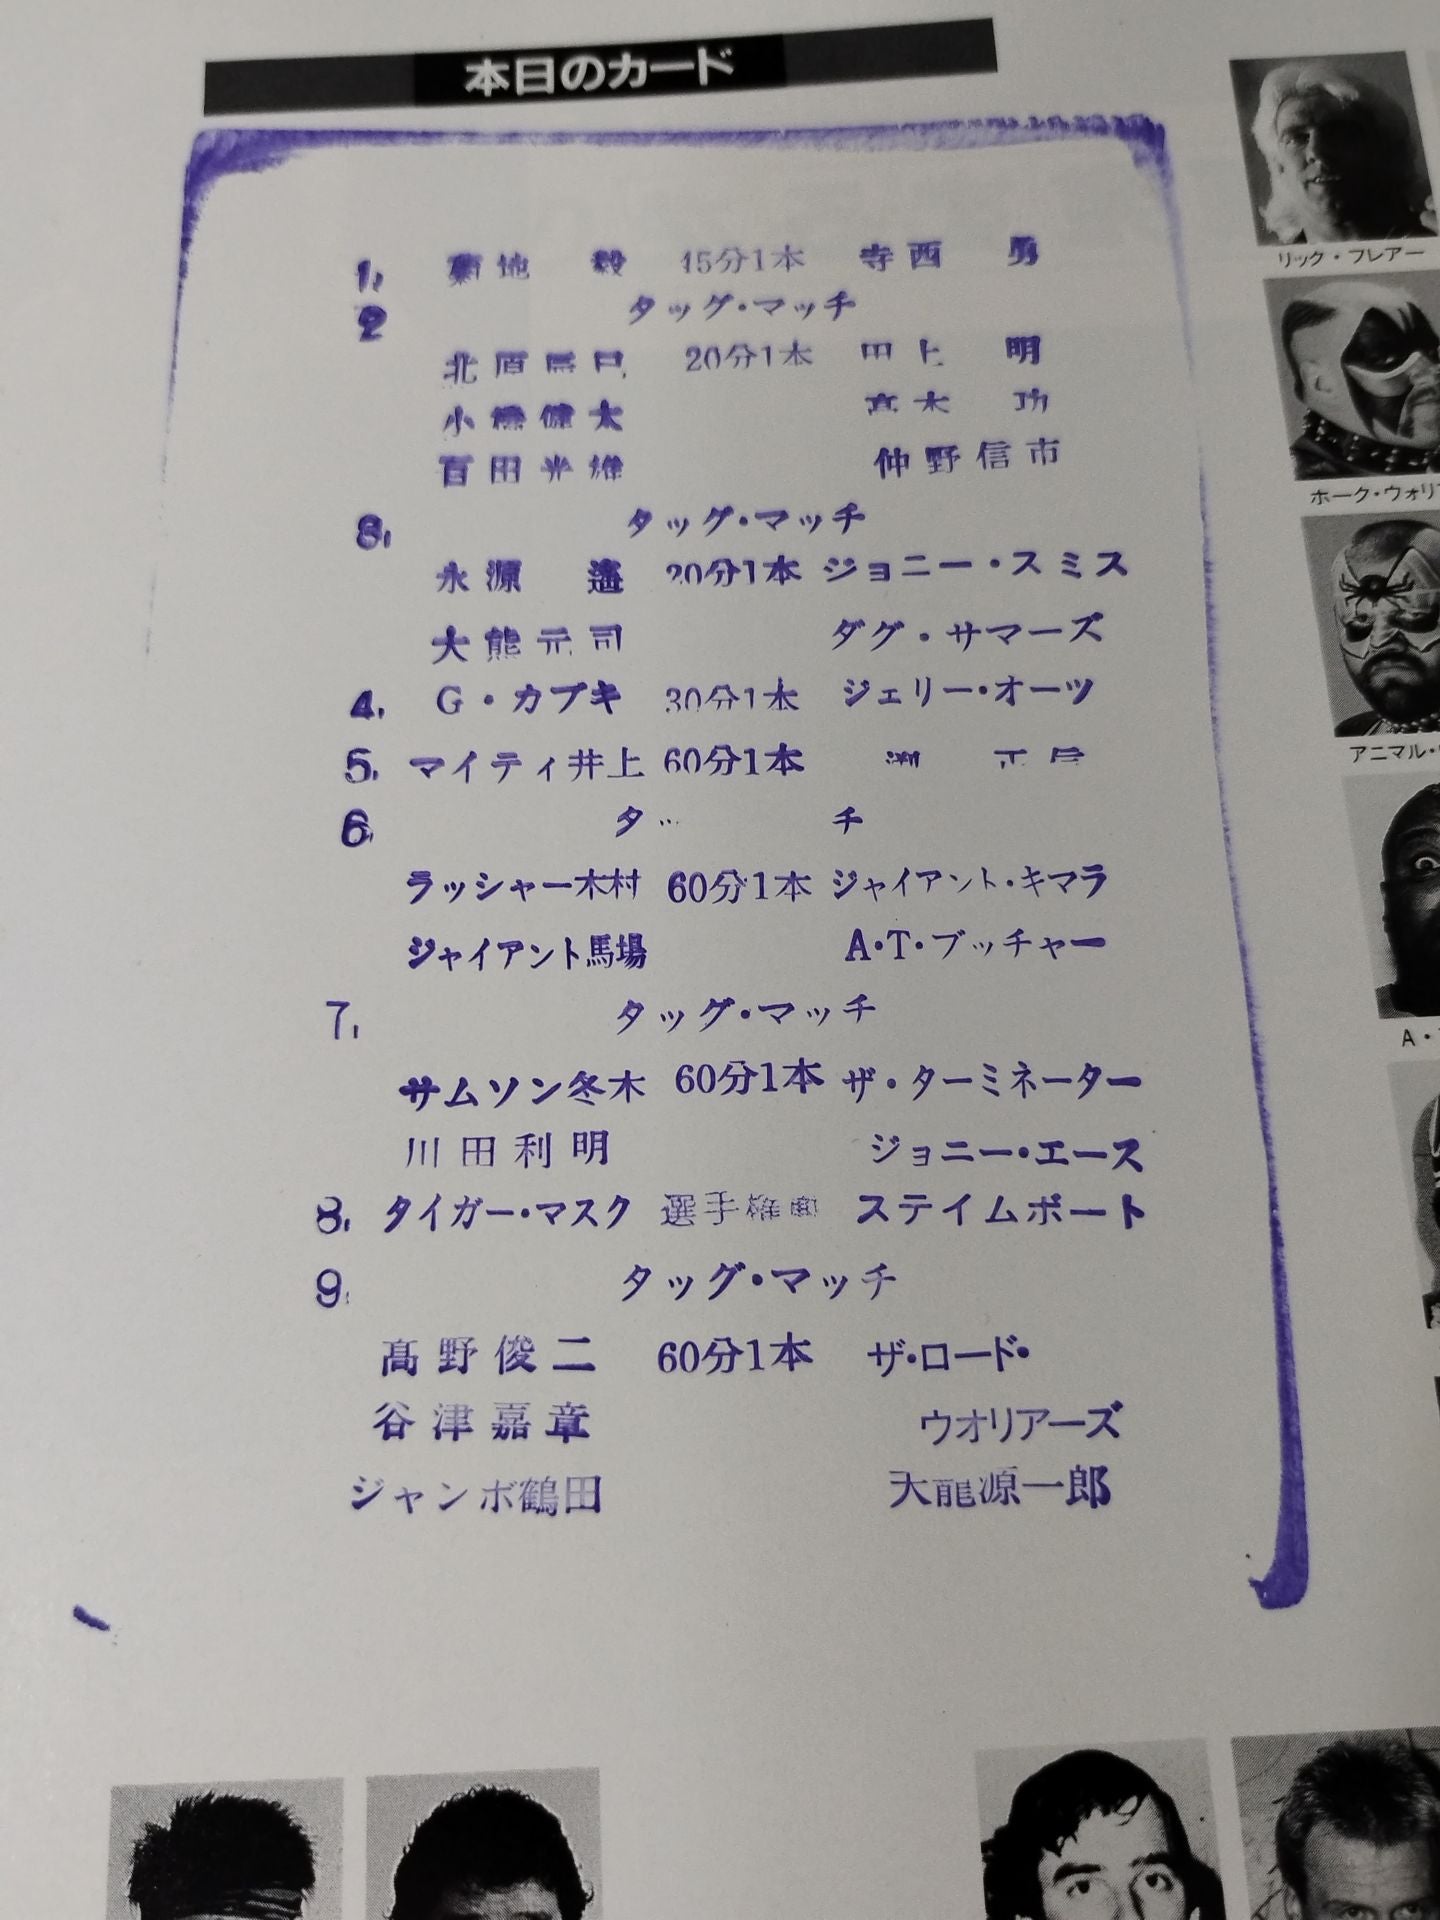 本日のカード
1. 菊地 毅 15分1本 寺西 勇
2 タッグ・マッチ
北原辰巳 20分1本 田上 明
小橋健太 高木 功
百田光雄 仲野信市
3. タッグ・マッチ
永源 遙 20分1本 ジョニー・スミス
大熊元司 ダグ・サマーズ
4. G・カブキ 30分1本 ジェリー・オーツ
5. マイティ井上 60分1本 渕 正信
6. タ チ
ラッシャー木村 60分1本 ジャイアント・キマラ
ジャイアント馬場 A・T・ブッチャー
7. タッグ・マッチ
サムソン冬木 60分1本 ザ・ターミネーター
川田利明 ジョニー・エース
8. タイガー・マスク 選手権 ステイムボート
9. タッグ・マッチ
髙野俊二 60分1本 ザ・ロード・
谷津嘉章 ウオリアーズ
ジャンボ鶴田 天龍源一郎
リック・フレアー
ホーク・ウォリ
アニマル・
A・